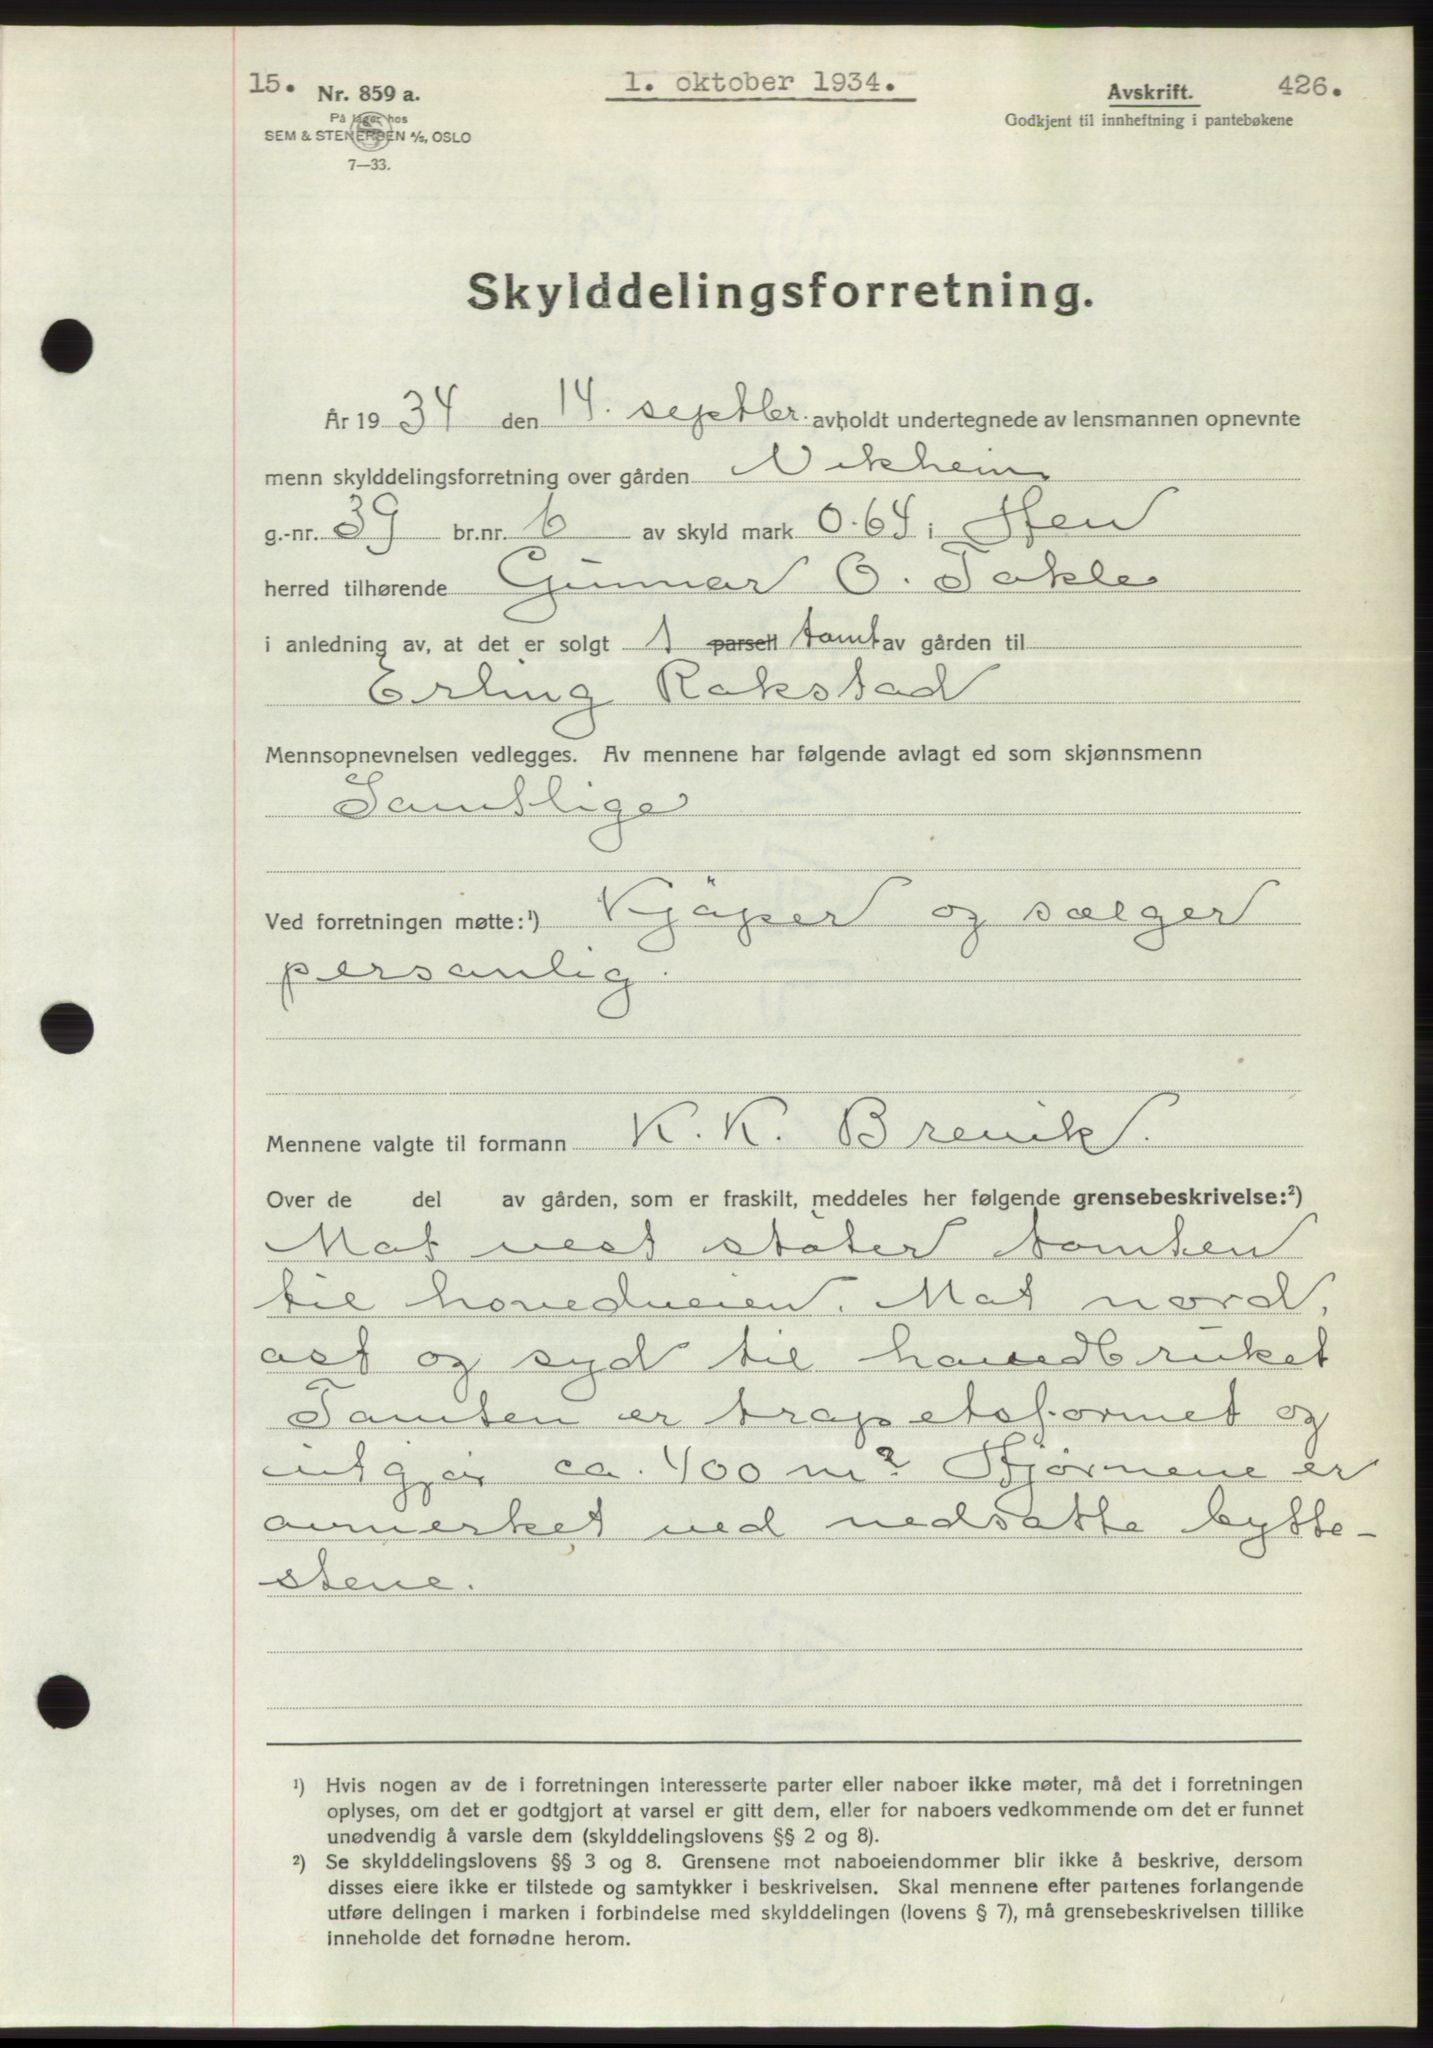 15.
1. oktober 1934.
426.
Nr. 859 a.
På lager hos
SEM & STENERSEN A/S, OSLO
7—33.
Avskrift.
Godkjent til innheftning i pantebøkene
Skylddelingsforretning.
År 1934 den 14. septbr. avholdt undertegnede av lensmannen opnevnte
menn skylddelingsforretning over gården Vikheim
g.-nr. 39 br.nr. 6 av skyld mark 0.64 i Hen
herred tilhørende Gunnar O. Takle
i anledning av, at det er solgt 1 parsell tomt av gården til
Erling Rakstad
Mennsopnevnelsen vedlegges. Av mennene har følgende avlagt ed som skjønnsmenn
Samtlige
Ved forretningen møtte:¹) Kjöper og sælger
personlig.
Mennene valgte til formann K. K. Brevik.
Over de del av gården, som er fraskilt, meddeles her følgende grensebeskrivelse:²)
Mot vest støter tomten
til hovedveien. Mot nord,
ost og syd til hovedbruket
Tomten er trapetsformet og
utgjör ca. 400 m² Hjørnene er
avmerket ved nedsatte bytte-
stene.
¹) Hvis nogen av de i forretningen interesserte parter eller naboer ikke møter, må det i forretningen
oplyses, om det er godtgjort at varsel er gitt dem, eller for naboers vedkommende om det er funnet
unødvendig å varsle dem (skylddelingslovens §§ 2 og 8).
²) Se skylddelingslovens §§ 3 og 8. Grensene mot naboeiendommer blir ikke å beskrive, dersom
disses eiere ikke er tilstede og samtykker i beskrivelsen. Skal mennene efter partenes forlangende
utføre delingen i marken i forbindelse med skylddelingen (lovens § 7), må grensebeskrivelsen tillike
inneholde det fornødne herom.